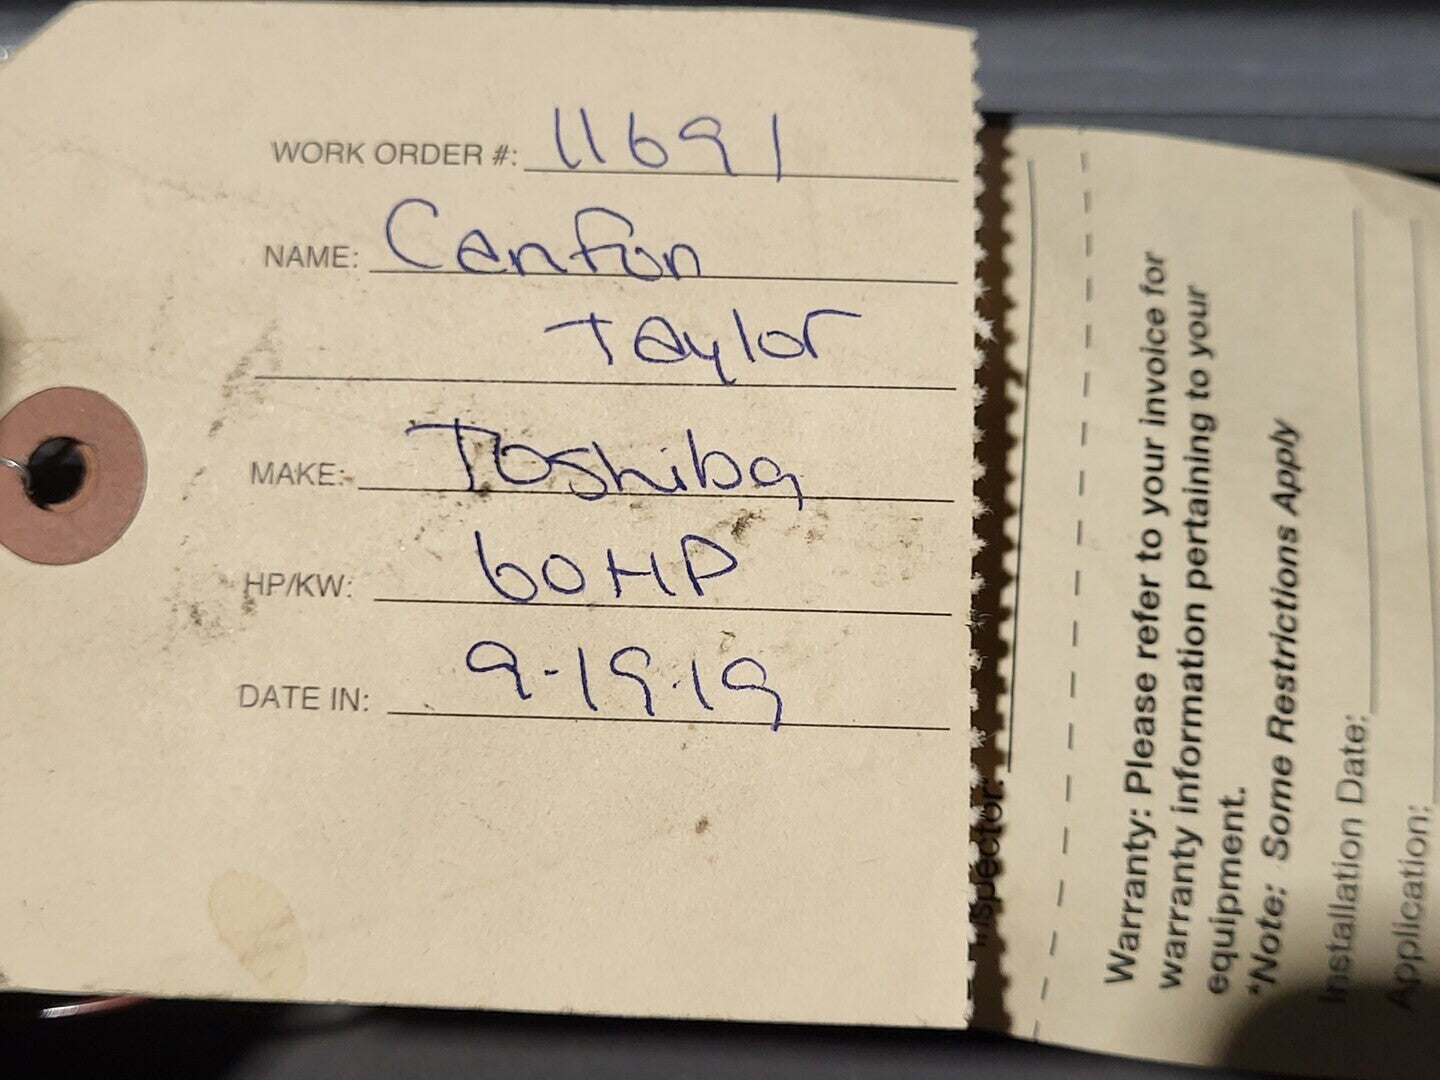 WORK ORDER #: 11691
NAME: Canfor
Taylor
MAKE: Toshiba
HP/KW: 60HP
DATE IN: 9-19-19
Inspector:
Warranty: Please refer to your invoice for
warranty information pertaining to your
equipment.
*Note: Some Restrictions Apply
Installation Date:
Application: